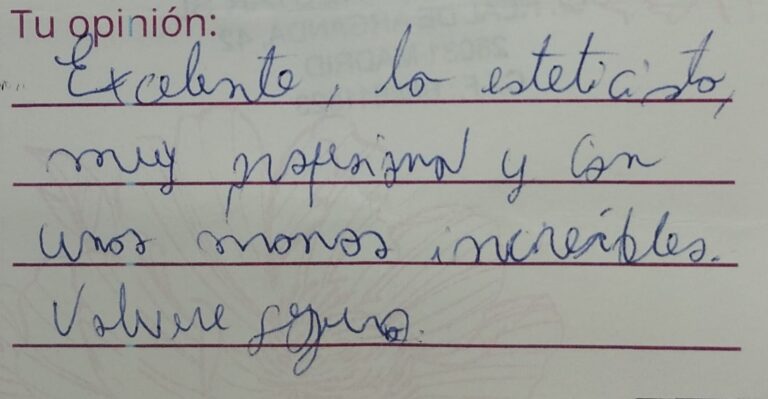 Tu opinión:
Excelente, la esteticista,
muy profesional y con
unas manos increíbles.
Volvere seguro.